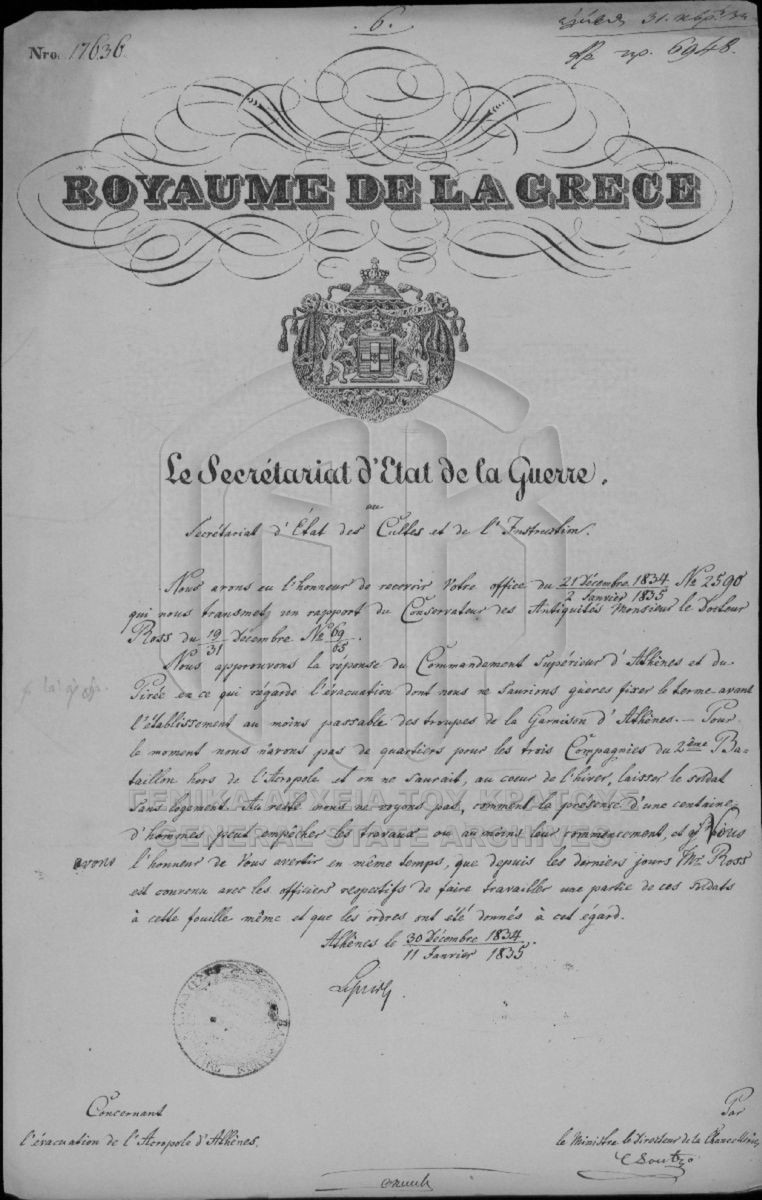 6.
31.
Nro. 17636.
6948.
ROYAUME DE LA GRECE
Le Secrétariat d'Etat de la Guerre.
au
Secrétariat d'État des Cultes et de l'Instruction.
Nous avons eu l'honneur de recevoir Votre office du 21 Décembre 1834 / 2 Janvier 1835 No 2590
qui nous transmet un rapport du Conservateur des Antiquités Monsieur le Docteur
Ross du 19/31 Décembre No 69/65.
Nous approuvons la réponse du Commandement Supérieur d'Athènes et du
Pirée en ce qui régarde l'évacuation dont nous ne saurions guères fixer le terme avant
l'établissement au moins passable des troupes de la Garnison d'Athènes. — Pour
le moment nous n'avons pas de quartiers pour les trois Compagnies du 2ème Ba-
taillon hors de l'Acropole et on ne saurait, au coeur de l'hiver, laisser le soldat
sans logement. Au reste nous ne voyons pas, comment la présence d'une centaine
d'hommes peut empêcher les travaux ou au moins leur commencement, et Nous
avons l'honneur de Vous avertir en même temps, que depuis les derniers jours Mr Ross
est convenu avec les officiers respectifs de faire travailler une partie de ces soldats
à cette fouille même et que les ordres ont été donnés à cet égard.
Athènes le 30 Décembre 1834 / 11 Janvier 1835.
ΓΕΝΙΚΑ ΑΡΧΕΙΑ ΤΟΥ ΚΡΑΤΟΥΣ
GENERAL STATE ARCHIVES
Concernant
l'évacuation de l'Acropole d'Athènes.
Par
le Ministre le Directeur de la Chancellerie
C Soutzo